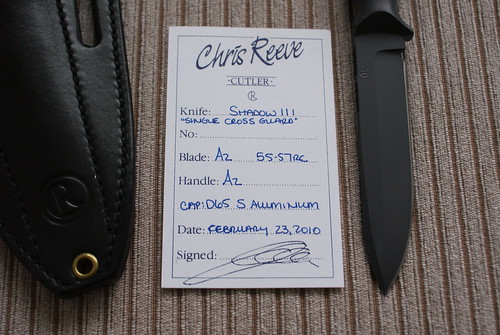 Chris Reeve
·CUTLER·
R
Knife: SHADOW III
"SINGLE CROSS GUARD"
No:
Blade: A2 55-57RC
Handle: A2
CAP: D65 S ALUMINIUM
Date: FEBRUARY 23, 2010
Signed:
R